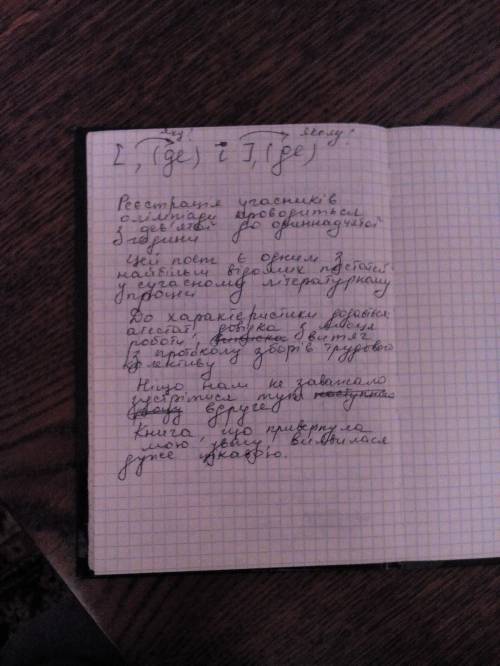 яку? якому?
[ , (де) і ], (де)
Реєстрація учасників
олімпіади проводиться
з дев'ятої до одиннадчатої
години
Цей поет є одним з
найбільш відомих постатей
у сучасному літературному
процесі
До характеристики додавься
атестат, довідка з місця
роботи, виписка витяг
з протоколу зборів трудового
колективу
Ніщо нам не заважало
зустрітися тут наступного
вдруге
Книга, що привернула
мою увагу, виявилася
дуже цікавою.